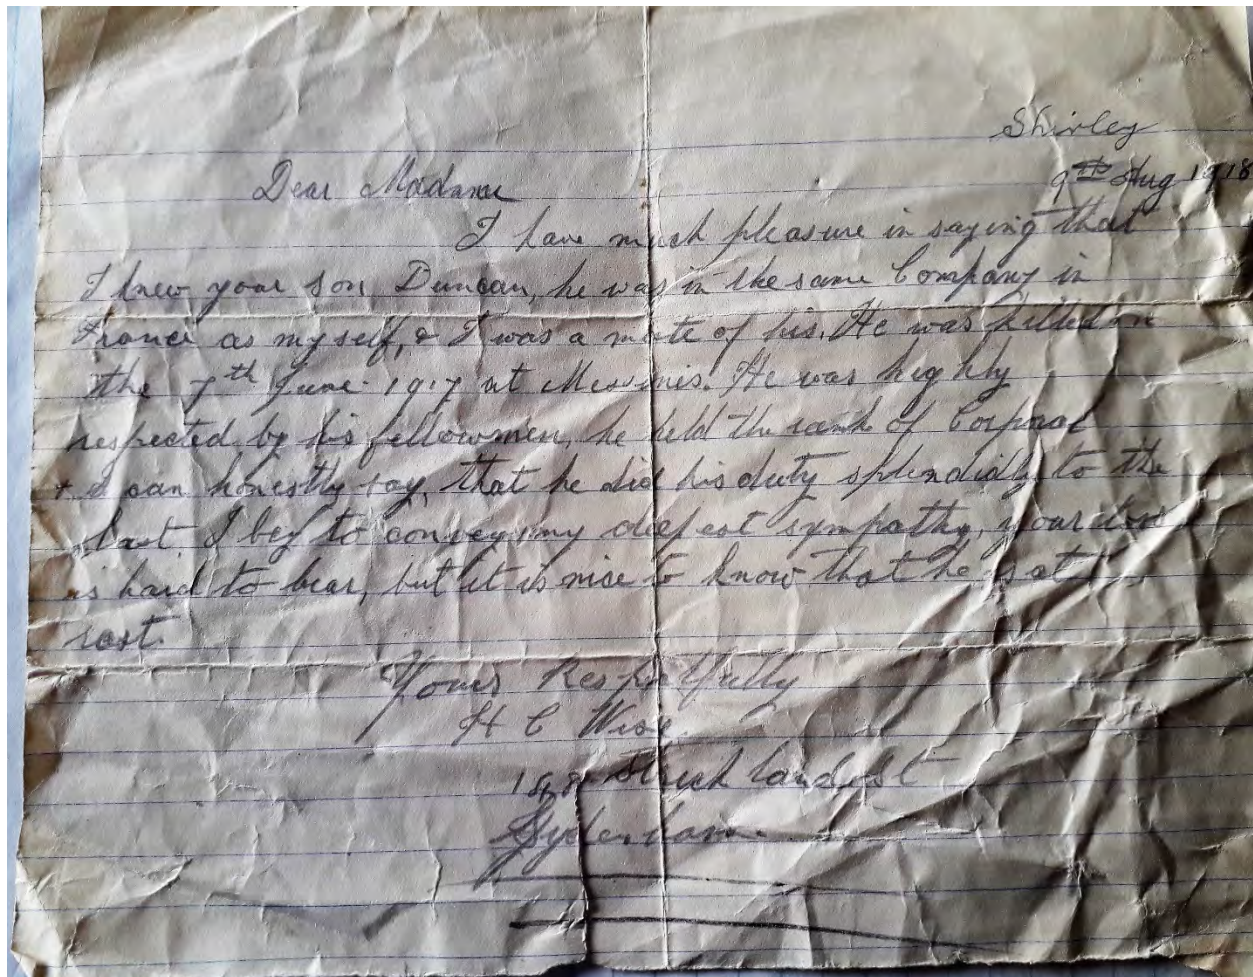 Shirley
9th Aug 1918
Dear Madam
I have much pleasure in saying that
I knew your son, Duncan, he was in the same Company in
France as myself, & I was a mate of his. He was killed on
the 7th June 1917 at Messines. He was highly
respected by his fellowmen, he held the rank of Corporal
& I can honestly say, that he did his duty splendidly to the
last. I beg to convey my deepest sympathy, your loss
is hard to bear, but it is nise to know that he is at
rest.
Yours Respectfully
H C Wise
Strickland St
Sydenham